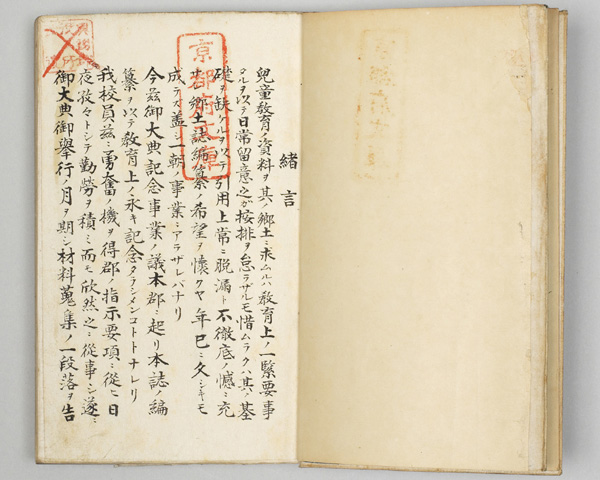 緒言
兒童敎育ノ資料ヲ其ノ鄕土ニ求ムルハ敎育上ノ一緊要事
タルヲ以テ日常留意之ガ按排ヲ怠ラザルモ惜ムラクハ其ノ基
礎ヲ缺ケルヲ以テ引用上常ニ脫漏ト不徹底ノ憾ニ充
鄕土誌編纂ノ希望ヲ懷クヤ年已ニ久シキモ
成ラズ蓋シ一朝ノ事業ニアラザレバナリ
今玆御大典記念事業ノ議本郡ニ起リ本誌ノ編
纂ヲ以テ敎育上ノ永キ記念タラシメンコトトナレリ
我校員玆ニ勇奮ノ機ヲ得郡ノ指示要項ニ從ヒ日
夜孜々トシテ勤勞ヲ積ミ而モ欣然之ニ從事シ遂ニ
御大典御擧行ノ月ヲ期シ材料蒐集ノ一段落ヲ告
京都府文庫